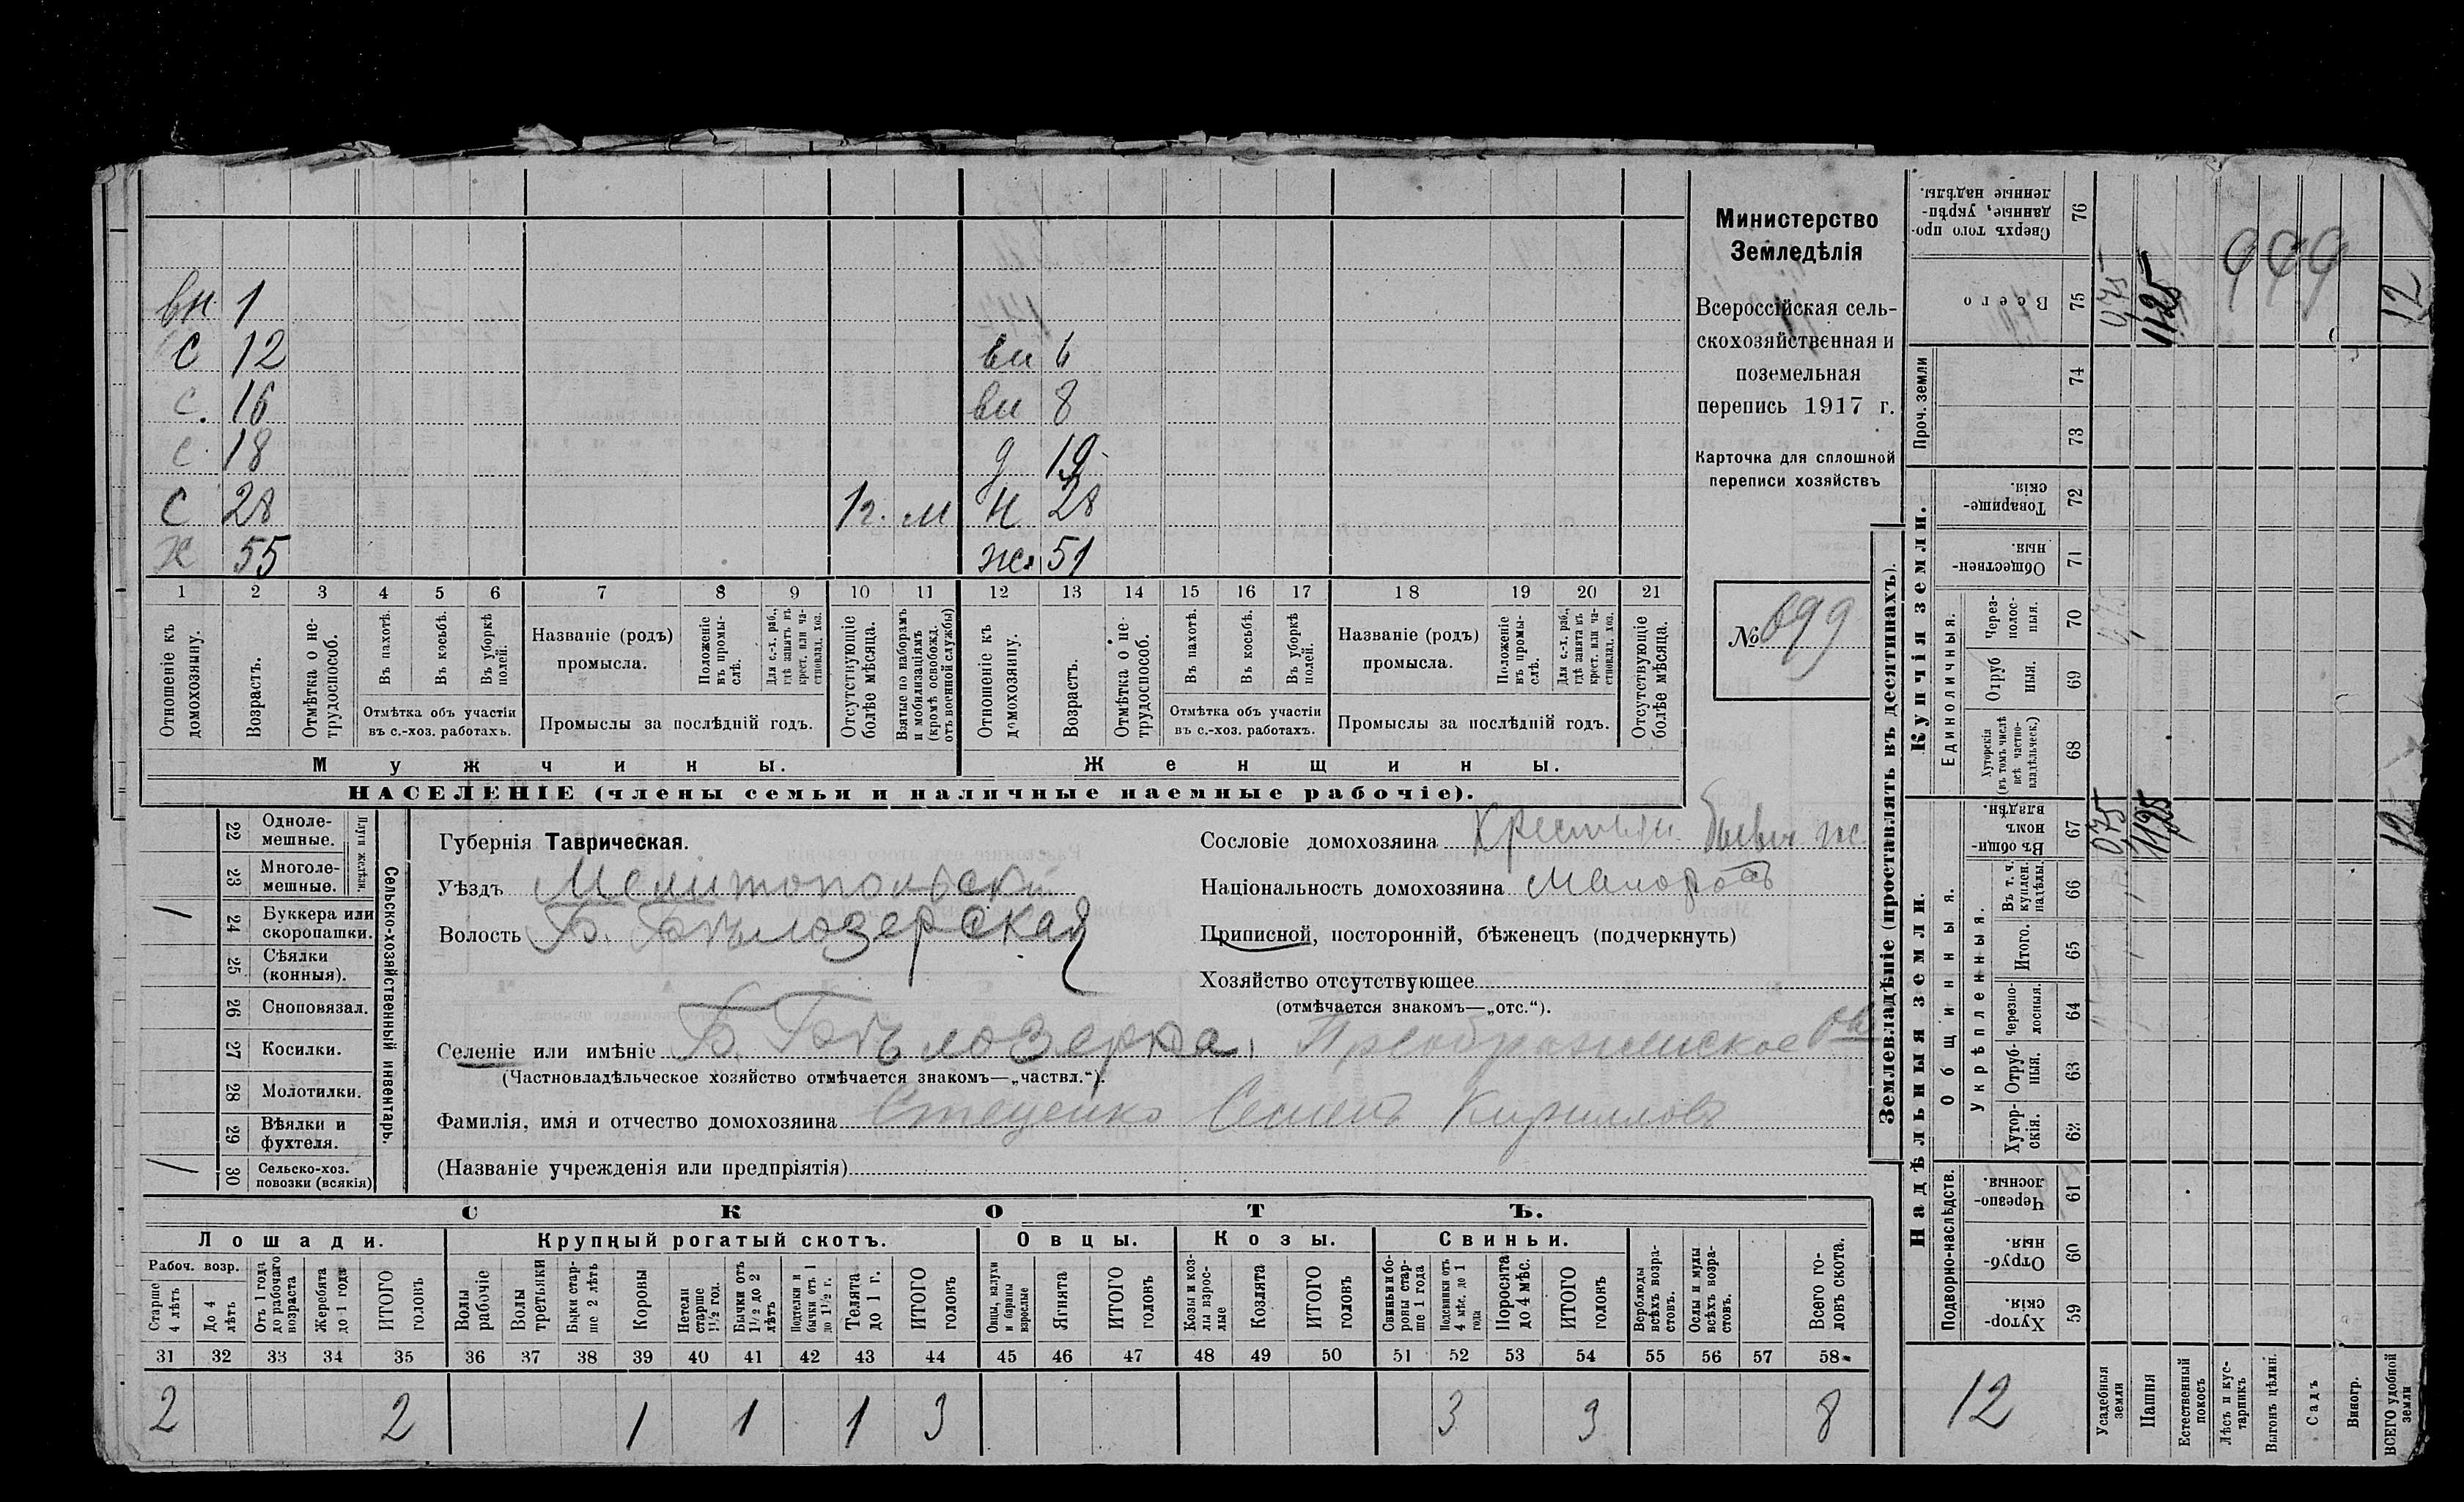 вн. 1
С 12 вн 6
с. 16 вн 8
с. 18 д 19
С 28 1 г. м Н 28
Х 55 жс. 51
1 2 3 4 5 6 7 8 9 10 11 12 13 14 15 16 17 18 19 20 21
Отношеніе къ домохозяину.
Возрастъ.
Отмѣтка о нетрудоспособ.
Въ пахотѣ.
Въ косьбѣ.
Въ уборкѣ полей.
Отмѣтка объ участіи
въ с.-хоз. работахъ.
Названіе (родъ)
промысла.
Положеніе въ промыслѣ.
Для с.-х. раб., гдѣ занятъ въ крест. или частновлад. хоз.
Промыслы за послѣдній годъ.
Отсутствующіе болѣе мѣсяца.
Взятые по наборамъ и мобилизаціямъ (кромѣ освобожд. отъ военной службы)
Отношеніе къ домохозяину.
Возрастъ.
Отмѣтка о нетрудоспособ.
Въ пахотѣ.
Въ косьбѣ.
Въ уборкѣ полей.
Отмѣтка объ участіи
въ с.-хоз. работахъ.
Названіе (родъ)
промысла.
Положеніе въ промыслѣ.
Для с.-х. раб., гдѣ занята въ крест. или частновлад. хоз.
Промыслы за послѣдній годъ.
Отсутствующіе болѣе мѣсяца.
Мужчины. Женщины.
НАСЕЛЕНІЕ (члены семьи и наличные наемные рабочіе).
Министерство
Земледѣлія
Всероссійская сель-
скохозяйственная и
поземельная
перепись 1917 г.
Карточка для сплошной
переписи хозяйствъ
№ 699
22 Одноле-
мешные.
23 Многоле-
мешные.
Плуги желѣзн.
1 24 Буккера или
скоропашки.
25 Сѣялки
(конныя).
26 Сноповязал.
27 Косилки.
28 Молотилки.
29 Вѣялки и
фухтеля.
1 30 Сельско-хоз.
повозки (всякія)
Сельско-хозяйственный инвентарь.
Губернія Таврическая.
Уѣздъ Мелитопольскій
Волость Б. Бѣлозерская
Сословіе домохозяина Крестьян.
Національность домохозяина Малоросъ
Приписной, посторонній, бѣженецъ (подчеркнуть)
Хозяйство отсутствующее
(отмѣчается знакомъ—„отс.“).
Селеніе или имѣніе Б. Бѣлозерка, Преображенское
(Частновладѣльческое хозяйство отмѣчается знакомъ—„частвл.“).
Фамилія, имя и отчество домохозяина Стеценко Семенъ Кирилловъ
(Названіе учрежденія или предпріятія)
СКОТЪ.
Лошади. Крупный рогатый скотъ. Овцы. Козы. Свиньи.
Рабоч. возр.
Старше 4 лѣтъ
До 4 лѣтъ
Отъ 1 года до рабочаго возраста
Жеребята до 1 года
ИТОГО головъ
Волы рабочіе
Волы третьяки
Быки старше 2 лѣтъ
Коровы
Нетели старше 1½ год.
Бычки отъ 1½ до 2 лѣтъ
Подтелки и бычки отъ 1 до 1½ г.
Телята до 1 г.
ИТОГО головъ
Овцы, валухи и бараны взрослые
Ягнята
ИТОГО головъ
Козы и козлы взрослые
Козлята
ИТОГО головъ
Свиньи и боровы старше 1 года
Подсвинки отъ 4 мѣс. до 1 года
Поросята до 4 мѣс.
ИТОГО головъ
Верблюды всѣхъ возрастовъ.
Ослы и мулы всѣхъ возрастовъ.
Всего головъ скота.
31 32 33 34 35 36 37 38 39 40 41 42 43 44 45 46 47 48 49 50 51 52 53 54 55 56 57 58
2 2 1 1 1 3 3 3 8
Землевладѣніе (проставлять въ десятинахъ).
Надѣльныя земли. Купчія земли.
Подворно-наслѣдств.
Общинныя.
Укрѣпленныя.
Единоличныя.
Проч. земли
Хуторскія 59
Отрубныя. 60
Черезполосныя 61
Хуторскія. 62
Отрубныя. 63
Черезполосныя. 64
Итого. 65
Въ т. ч. куплен. надѣлы. 66
Въ общинномъ владѣн. 67
Хуторскія (въ томъ числѣ всѣ частновладѣльческ.) 68
Отрубныя. 69
Черезполосныя. 70
Общественныя. 71
Товарищескія. 72
73
74
Всего 75
Сверхъ того проданные, укрѣпленные надѣлы. 76
Усадебныя земли 0,75 0,75
Пашня 11,25 11,25
Естественный покосъ
Лѣсъ и кустарникъ
Выгонъ цѣлин.
Садъ
Виногр.
ВСЕГО удобной земли 12 12
12
699